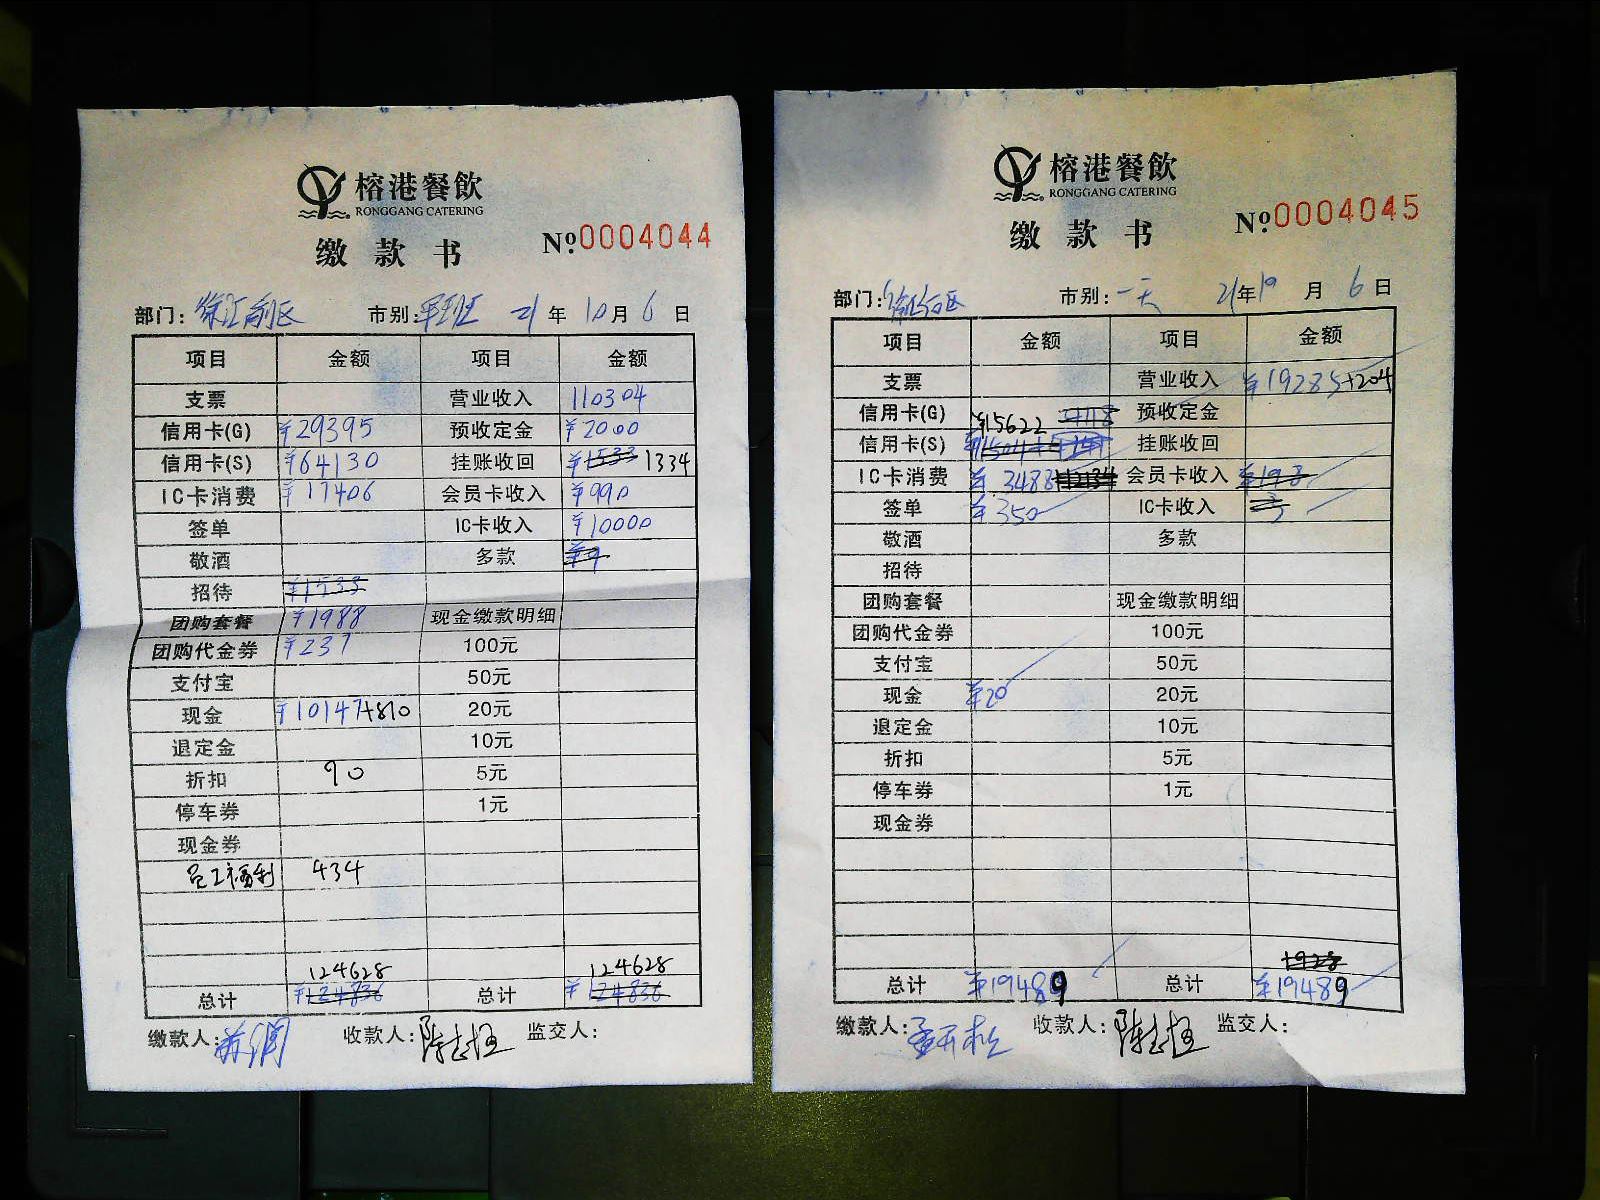 榕港餐飲
RONGGANG CATERING
缴款书
№0004044
部门：徐汇前区 市别： 21年10月6日
项目 金额 项目 金额
支票 营业收入 110304
信用卡(G) ¥29395 预收定金 ¥2000
信用卡(S) ¥64130 挂账收回 ¥1533 1334
IC卡消费 ¥17406 会员卡收入 ¥990
签单 IC卡收入 ¥10000
敬酒 多款 ¥9
招待 ¥1533
团购套餐 ¥1988 现金缴款明细
团购代金券 ¥237 100元
支付宝 50元
现金 ¥10147+810 20元
退定金 10元
折扣 90 5元
停车券 1元
现金券
员工福利 434
124628 124628
总计 ¥124836 总计 ¥124836
缴款人： 收款人： 监交人：
榕港餐飲
RONGGANG CATERING
缴款书
№0004045
部门： 市别：一天 21年10月6日
项目 金额 项目 金额
支票 营业收入 ¥19285+204
信用卡(G) ¥15622 预收定金
信用卡(S) 挂账收回
IC卡消费 ¥3488 会员卡收入 ¥198
签单 ¥350 IC卡收入
敬酒 多款
招待
团购套餐 现金缴款明细
团购代金券 100元
支付宝 50元
现金 ¥20 20元
退定金 10元
折扣 5元
停车券 1元
现金券
总计 ¥19489 总计 ¥19489
缴款人： 收款人： 监交人：